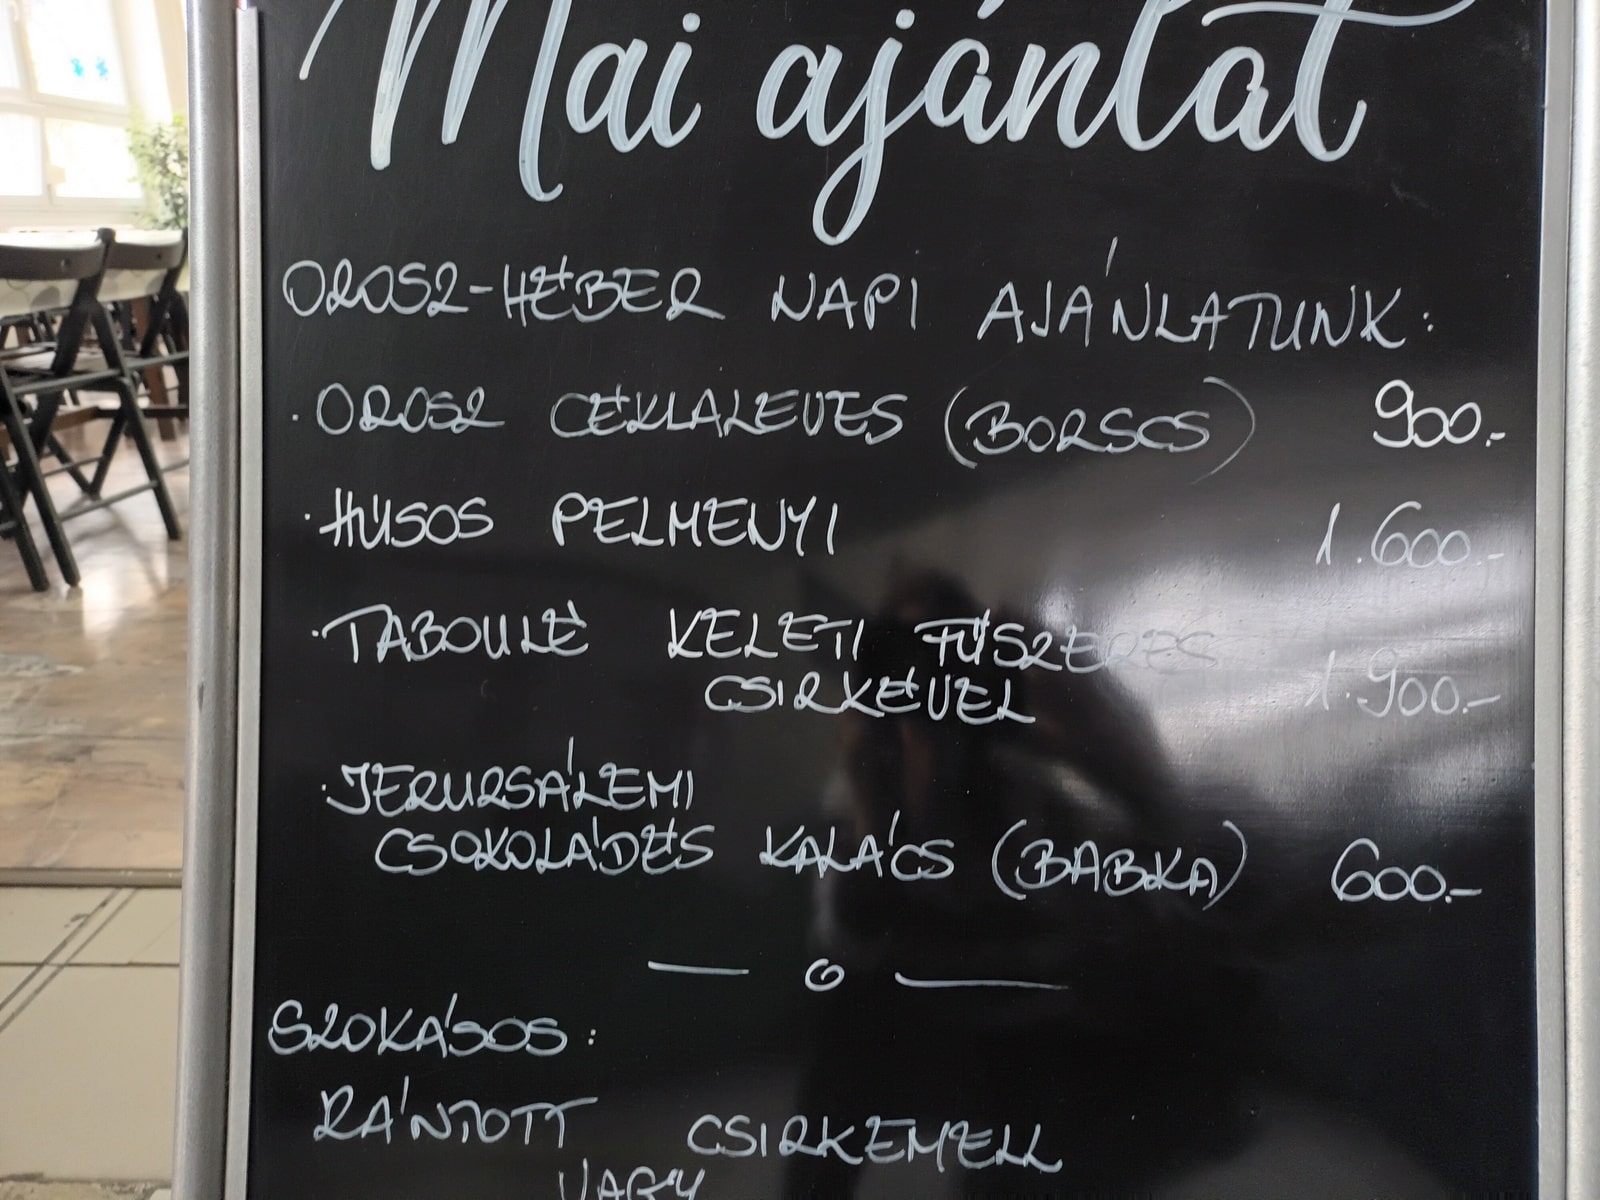 Mai ajánlat
OROSZ-HÉBER NAPI AJÁNLATUNK:
· OROSZ CÉKLALEVES (BORSCS) 900.-
· HÚSOS PELMENYI 1.600.-
· TABOULÉ KELETI FŰSZERES
CSIRKÉVEL 1.900.-
· JERURSÁLEMI
CSOKOLÁDÉS KALÁCS (BABKA) 600.-
SZOKÁSOS:
RÁNTOTT CSIRKEMELL
VAGY